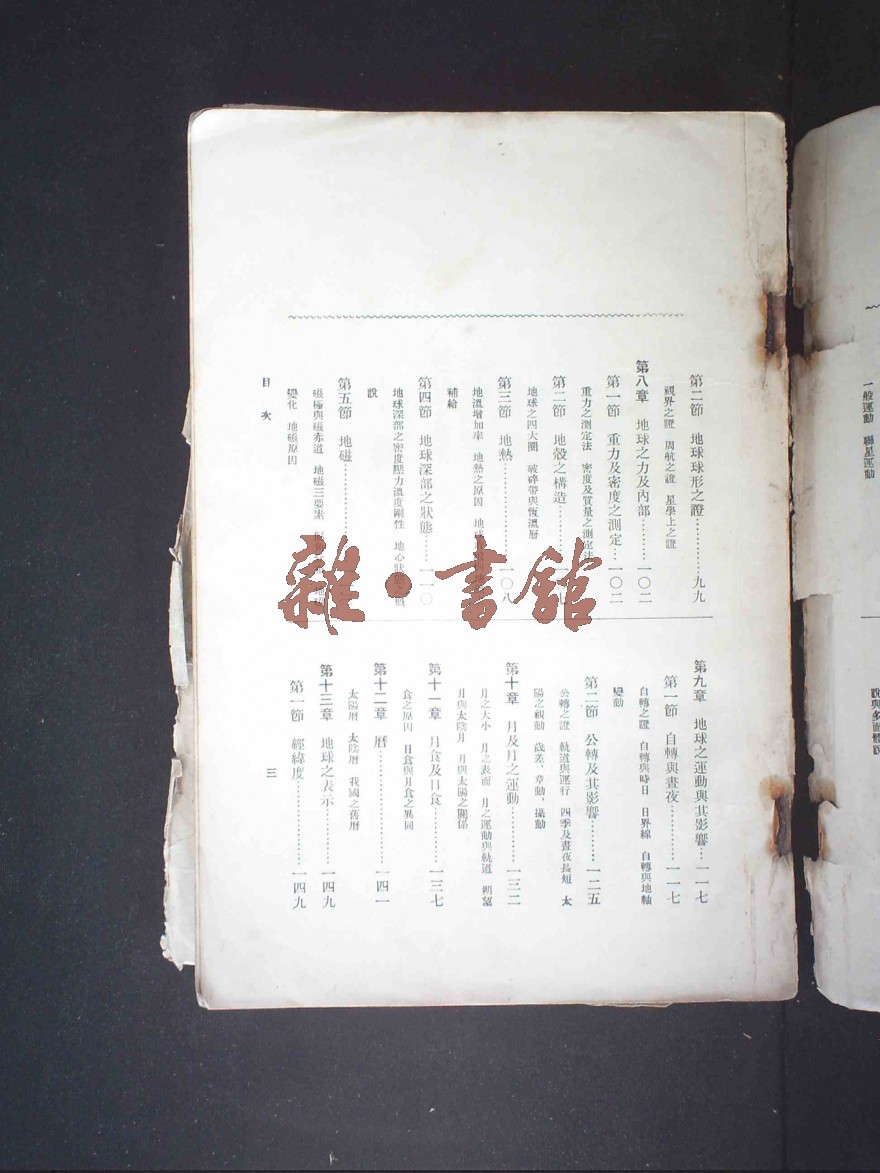 第二節　地球球形之證…………九九
視界之證　周航之證　星學上之證
第八章　地球之力及內部………一〇二
第一節　重力及密度之測定…一〇二
重力之測定法　密度及質量之測定法
第二節　地殼之構造
地球之四大圈　破碎帶與恆溫層
第三節　地熱…………一〇八
地溫增加率　地熱之原因
補給
第四節　地球深部之狀態……一一〇
地球深部之密度壓力溫度剛性　地心狀態之
說
第五節　地磁
磁極與磁赤道　地磁三要素
變化　地磁原因
第九章　地球之運動與其影響…一一七
第一節　自轉與晝夜…………一一七
自轉之證　自轉與時日　日界線　自轉與地軸
變動
第二節　公轉及其影響………一二五
公轉之證　軌道與運行　四季及晝夜長短　太
陽之視動　歲差、章動、攝動
第十章　月及月之運動…………一三二
月之大小　月之表面　月之運動與軌道　朔望
月與太陰月　月與太陽之關係
第十一章　月食及日食…………一三七
食之原因　日食與月食之異同
第十二章　曆…………………一四一
太陽曆　太陰曆　我國之舊曆
第十三章　地球之表示…………一四九
第一節　經緯度………………一四九
目次
三
雜·書館
一般運動　聯星運動
說與多面體說